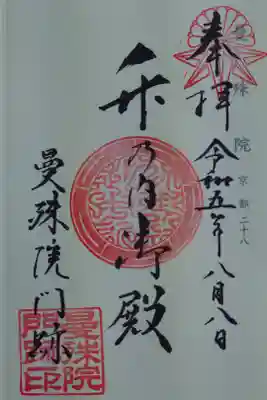 奉拝
令和五年八月八日
曼殊院 京都二十八
竹の内御殿
曼殊院門跡
曼殊院
門跡印